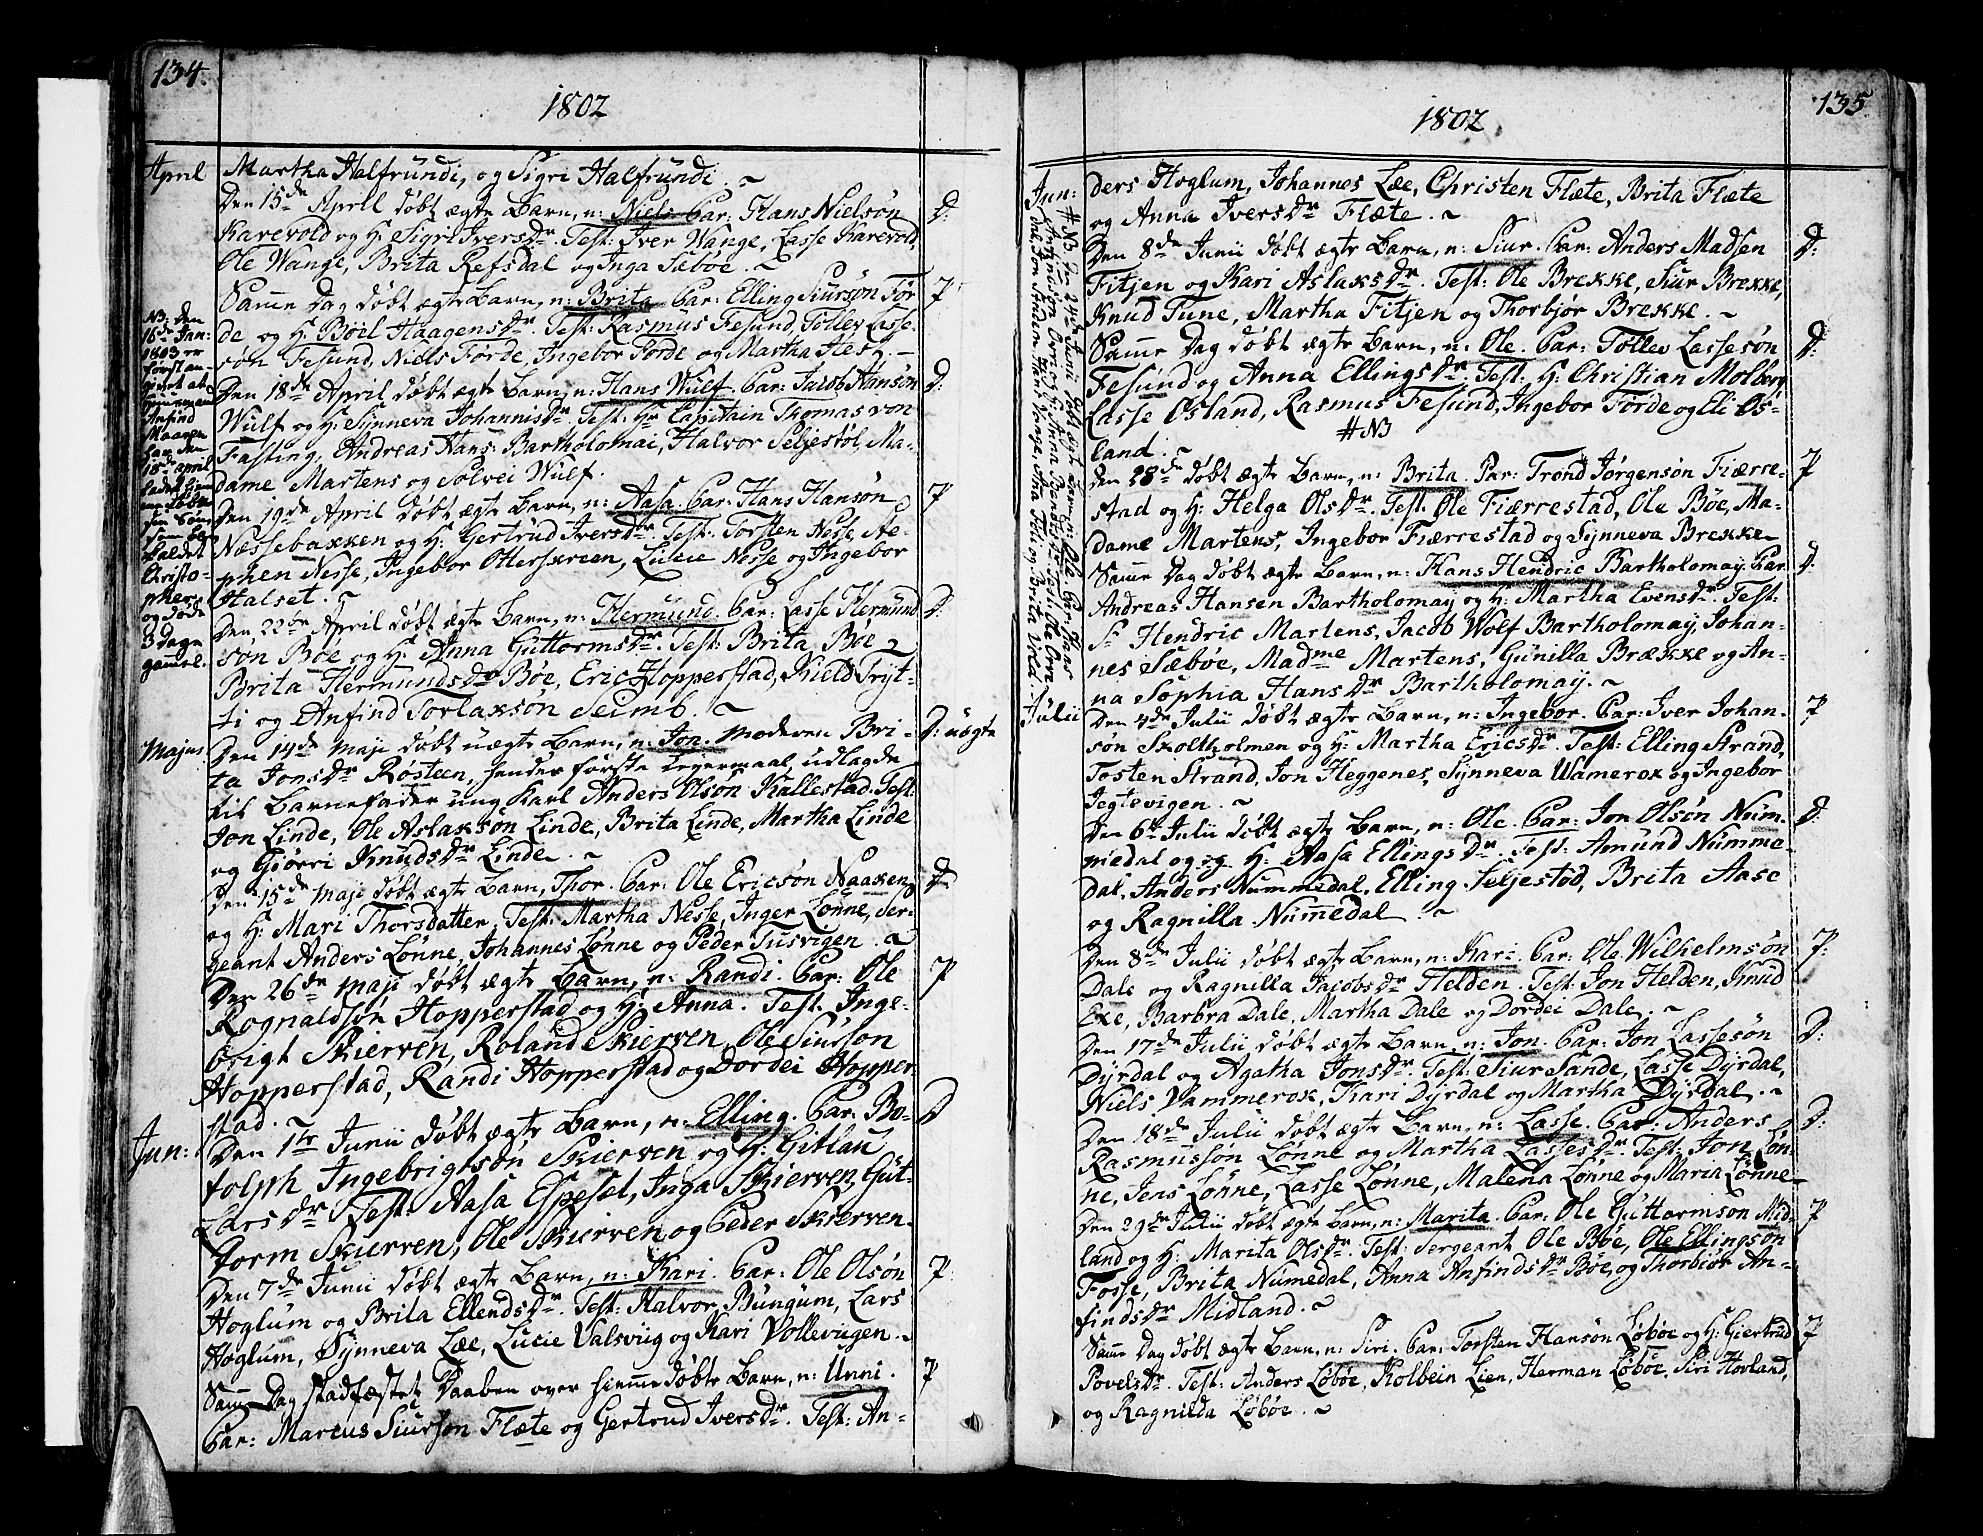 134.
1802
April
Martha Halfrundi, og Sigri Halfrundi. ~
Den 15de April døbt ægte Barn, n: Niels. Par: Hans Nielsøn
Karevold og H: Sigri Iversdr. Test: Iver Wange, Lasse Karevold,
Ole Wange, Brita Refsdal og Inga Sæbøe. ~
D:
Samme Dag døbt ægte Barn, n: Brita. Par: Elling Siursøn Før
de, og H: Böel Haagensdr. Test: Rasmus Fesund, Tollev Lasse
søn Fesund, Niels Førde, Ingebor Førde og Martha Hesg. ~
P
Den 18de April døbt ægte Barn, n: Hans Wulf. Par: Jacob Hansøn
Wulf og H: Synneva Johannisdr. Test: Hr Capitain Thomas von
Fasting, Andreas Hans: Bartholomai, Halvor Seljestøl, Ma-
dame Martens og Solvei Wulf.
D:
Den 19de April døbt ægte Barn, n: Aasa. Par: Hans Hansøn
Næssebakken og H: Gertrud Iversdr. Test: Torsten Nesse, Ste-
phen Nesse, Ingebor Otterskreen, Lucie Nesse og Ingebor
Halset. ~
P
Den 22de April døbt ægte Barn, n: Hermund. Par: Lasse Hermund
søn Bøe og H: Anna Guttormsdr. Test: Brita Bøe,
Brita Hermundsdr Bøe, Eric Hopperstad, Kield Tryt-
ti og Anfind Torlaksøn Seimb. ~
D:
NB: den
16de Jan:
1803 er
først an-
givet at
Anfind
Maaren
har den
18de april
ladet hiem
me døbe
sin Søn
som er
kaldet
Christo-
pher,
og døde
3 Dage
gamel.
Majus
Den 14de Maji døbt uægte Barn, n: Jon. Moderen Bri-
ta Jonsdr Røsteen, hendes første Leyermaal, udlagde
til Barnefader ung Karl Anders Olsøn Kallestad. Test:
Jon Linde, Ole Aslaksøn Linde, Brita Linde, Martha Linde
og Giørri Knudsdr Linde. ~
D: uægte
Den 15de Maji døbt ægte Barn, Thor. Par: Ole Ericsøn Naaken
og H: Mari Thorsdatter. Test: Martha Nesse, Inger Lønne, Ser-
geant Anders Lønne, Johannes Lønne og Peder Tusvigen. ~
D
Den 26de Maji døbt ægte Barn, n: Randi. Par: Ole
Rognaldsøn Hopperstad og H: Anna. Test: Inge-
brigt Skierven, Roland Skierven, Ole Siursøn
Hopperstad, Randi Hopperstad og Dordei Hopper
stad. ~
P
Jun:
Den 1te Junii døbt ægte Barn, n: Elling. Par: Bo-
tolph Ingebrigtsøn Skierven og H: Gitlau
Larsdr. Test: Aasa Espeset, Inga Skierven, Gut-
torm Skierven, Ole Skierven og Peder Skierven.
D
Den 7de Junii døbt ægte Barn, n: Kari. Par: Ole Olsøn
Hoglum og Brita Ellendsdr. Test: Halvor Bungum, Lars
Hoglum, Synneva Læe, Lucie Valsviig og Kari Vollevigen. ~
P:
Samme Dag stadfæstet Daaben over hiemmedøbte Barn, n: Unni.
Par: Marcus Siursøn Flæte og Gertrud Iversdr. Test: An-
P
135.
1802
Jun:
ders Hoglum, Johannes Læe, Christen Flæte, Brita Flæte
og Anna Iversdr Flæte. ~
Den 8de Junii døbt ægte Barn, n: Siur. Par: Anders Madsen
Fitjen og Kari Aslaksdr. Test: Ole Brekke, Siur Brekke,
Knud Tune, Martha Fitjen og Thorbjør Brekke. ~
D:
Samme Dag døbt ægte Barn, n: Ole. Par: Tollev Lassesøn
Fesund og Anna Ellingsdr. Test: H: Christian Molberg
Lasse Osland, Rasmus Fesund, Ingebor Førde og Eli Os-
land. ~
# NB
D:
# NB Den 24de Junii døbt ægte Barn, n: Ole. Par: Hans
Den 28de døbt ægte Barn, n: Brita. Par: Trond Jørgensøn Fiærre-
stad og H: Helga Olsdr. Test: Ole Fiærrestad, Ole Bøe, Ma-
dame Martens, Ingebor Fiærrestad og Synneva Brekke
P
Samme Dag døbt ægte Barn, n: Hans Hendric Bartholomay. Par:
Andreas Hansen Bartholomay og H: Martha Evensdr. Test:
Sr Hendric Martens, Jacob Wolf Bartholomay, Johan-
nes Sæbøe, Madme Martens, Gunilla Brække og An-
na Sophia Hansdr Bartholomay. ~
D.
Julii
Den 4de Julii døbt ægte Barn, n: Ingebor. Par: Iver Johan-
søn Skoltholmen og H: Martha Ericsdr. Test: Elling Strand,
Tosten Strand, Jon Heggenes, Synneva Wamerox og Ingebor
Jegtevigen. ~
P
Den 6te Julii døbt ægte Barn, n: Ole. Par: Jon Olsøn Num-
medal og og H: Aasa Ellingsdr. Test: Amund Numme-
dal, Anders Nummedal, Elling Seljestød, Brita Aase
og Ragnilla Nummedal. ~
D:
Den 8de Julii døbt ægte Barn, n: Kari. Par: Ole Wilhelmsøn
Dale og Ragnilla Jacobsdr Helden. Test: Jon Helden, Knud
Exe, Barbra Dale, Martha Dale og Dordei Dale. ~
P:
Den 17de Julii døbt ægte Barn, n: Jon. Par: Jon Lassesøn
Dyrdal og Agatha Jonsdr. Test: Siur Sande, Lasse Dyrdal,
Niels Vammerox, Kari Dyrdal og Martha Dyrdal. ~
D:
Den 18de Julii døbt ægte Barn, n: Lasse. Par: Anders
Rasmussøn Lønne og Martha Lassesdr. Test: Jon Løn-
ne, Jens Lønne, Lasse Lønne, Malena Lønne og Maria Lønne.
D:
Den 29de Julii døbt ægte Barn, n: Marita. Par: Ole Guttormson Mid-
land og H: Marita Olsdr. Test: Sergeant Ole Bøe, Ole Ellingsøn
Fosse, Brita Numedal, Anna Anfindsdr Bøe, og Thorbiør An-
findsdr Midland. ~
P
Samme Dag døbt ægte Barn, n: Siri. Par: Torsten Hansøn Løbøe og H: Giertrud
Povelsdr. Test: Anders Løbøe, Kolbein Lien, Harman Løbøe, Siri Hovland,
og Ragnilda Løbøe. ~
P